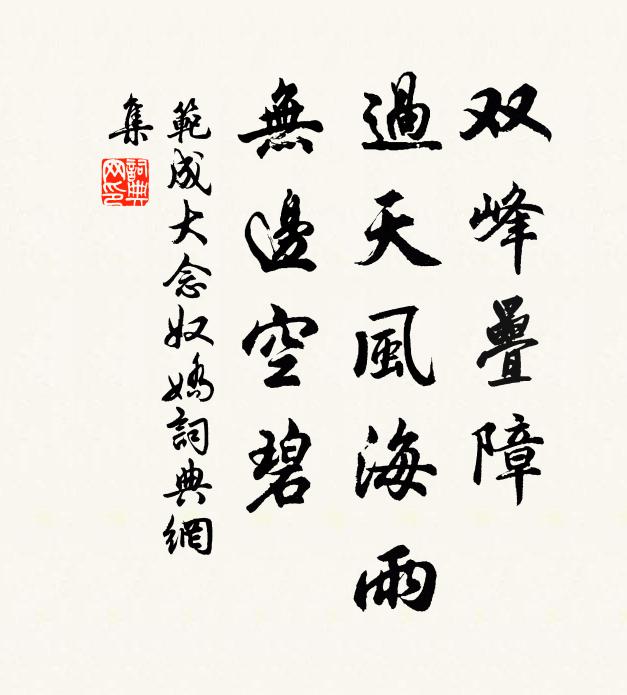 双峰疊障
過天風海雨
無邊空碧
範成大念奴嬌詞典網
集
詞典網印